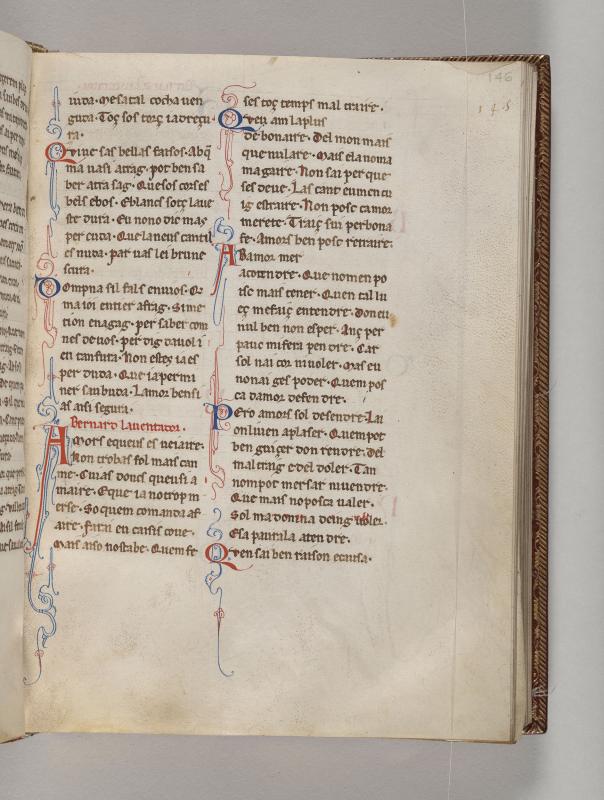 146
148
iuda. Mesatal cocha uen
guda. Toç sos torç ladreçu
ra.
Quinc sas bellas faisos. Abq
ma uasi atrag. pot ben sa
ber atra sag. Que sos cors es
bels e bos. E blancs sotç laue
ste dura. Eu nono dic mas
per cuda. Que la neus cant il
es nuda. par uas lei brune
scura.
Dompna sil fals enuios. Q
ma ioi entier afrag. Si me
tion en agag. per saber com
nes de uos. per dig dauol i
en tansura. Non esteç ia es
per duda. Que ia per mi
ner saubuda. Lamor bensi
as aisi segura.
Bernard lauentador.
Amors e que us es ueiaire.
Non trobas fol mais can
me. Cuias doncs que u si a
maire. E que ia no trop m
erse. So quem comanda af
aire. Farai en caisis coue.
Mais aiso nostabe. Quem fe
ses toç temps mal traire.
Qveu am la plus
de bonaire. Del mon mais
que nulare. Mais ela no ma
ma gaire. Non sai per que
ses deue. Las cant eu men cu
ig estraire. Non posc camor
merete. Traiç sui per bona
fe. Amors ben posc retraire.
Abamor mer
acoten dre. Que no men po
isc mais tener. Quen tal lu
eç me faiç entendre. Don eu
nul ben non esper. Anç per
pauc mi fera pen dre. Car
sol nai cor ni uoler. Mas eu
non ai ges poder. Quem pos
ca damor defen dre.
Pero amors sol desendre. La
on li uen aplaser. Quem pot
ben guiçer don rendre. Del
mal traig e del doler. Tan
nom pot mersar ni uendre.
Que mais no posca ualer.
Sol ma domna deing uoler.
E sa paraula aten dre.
Qveu sai ben raison e causa.